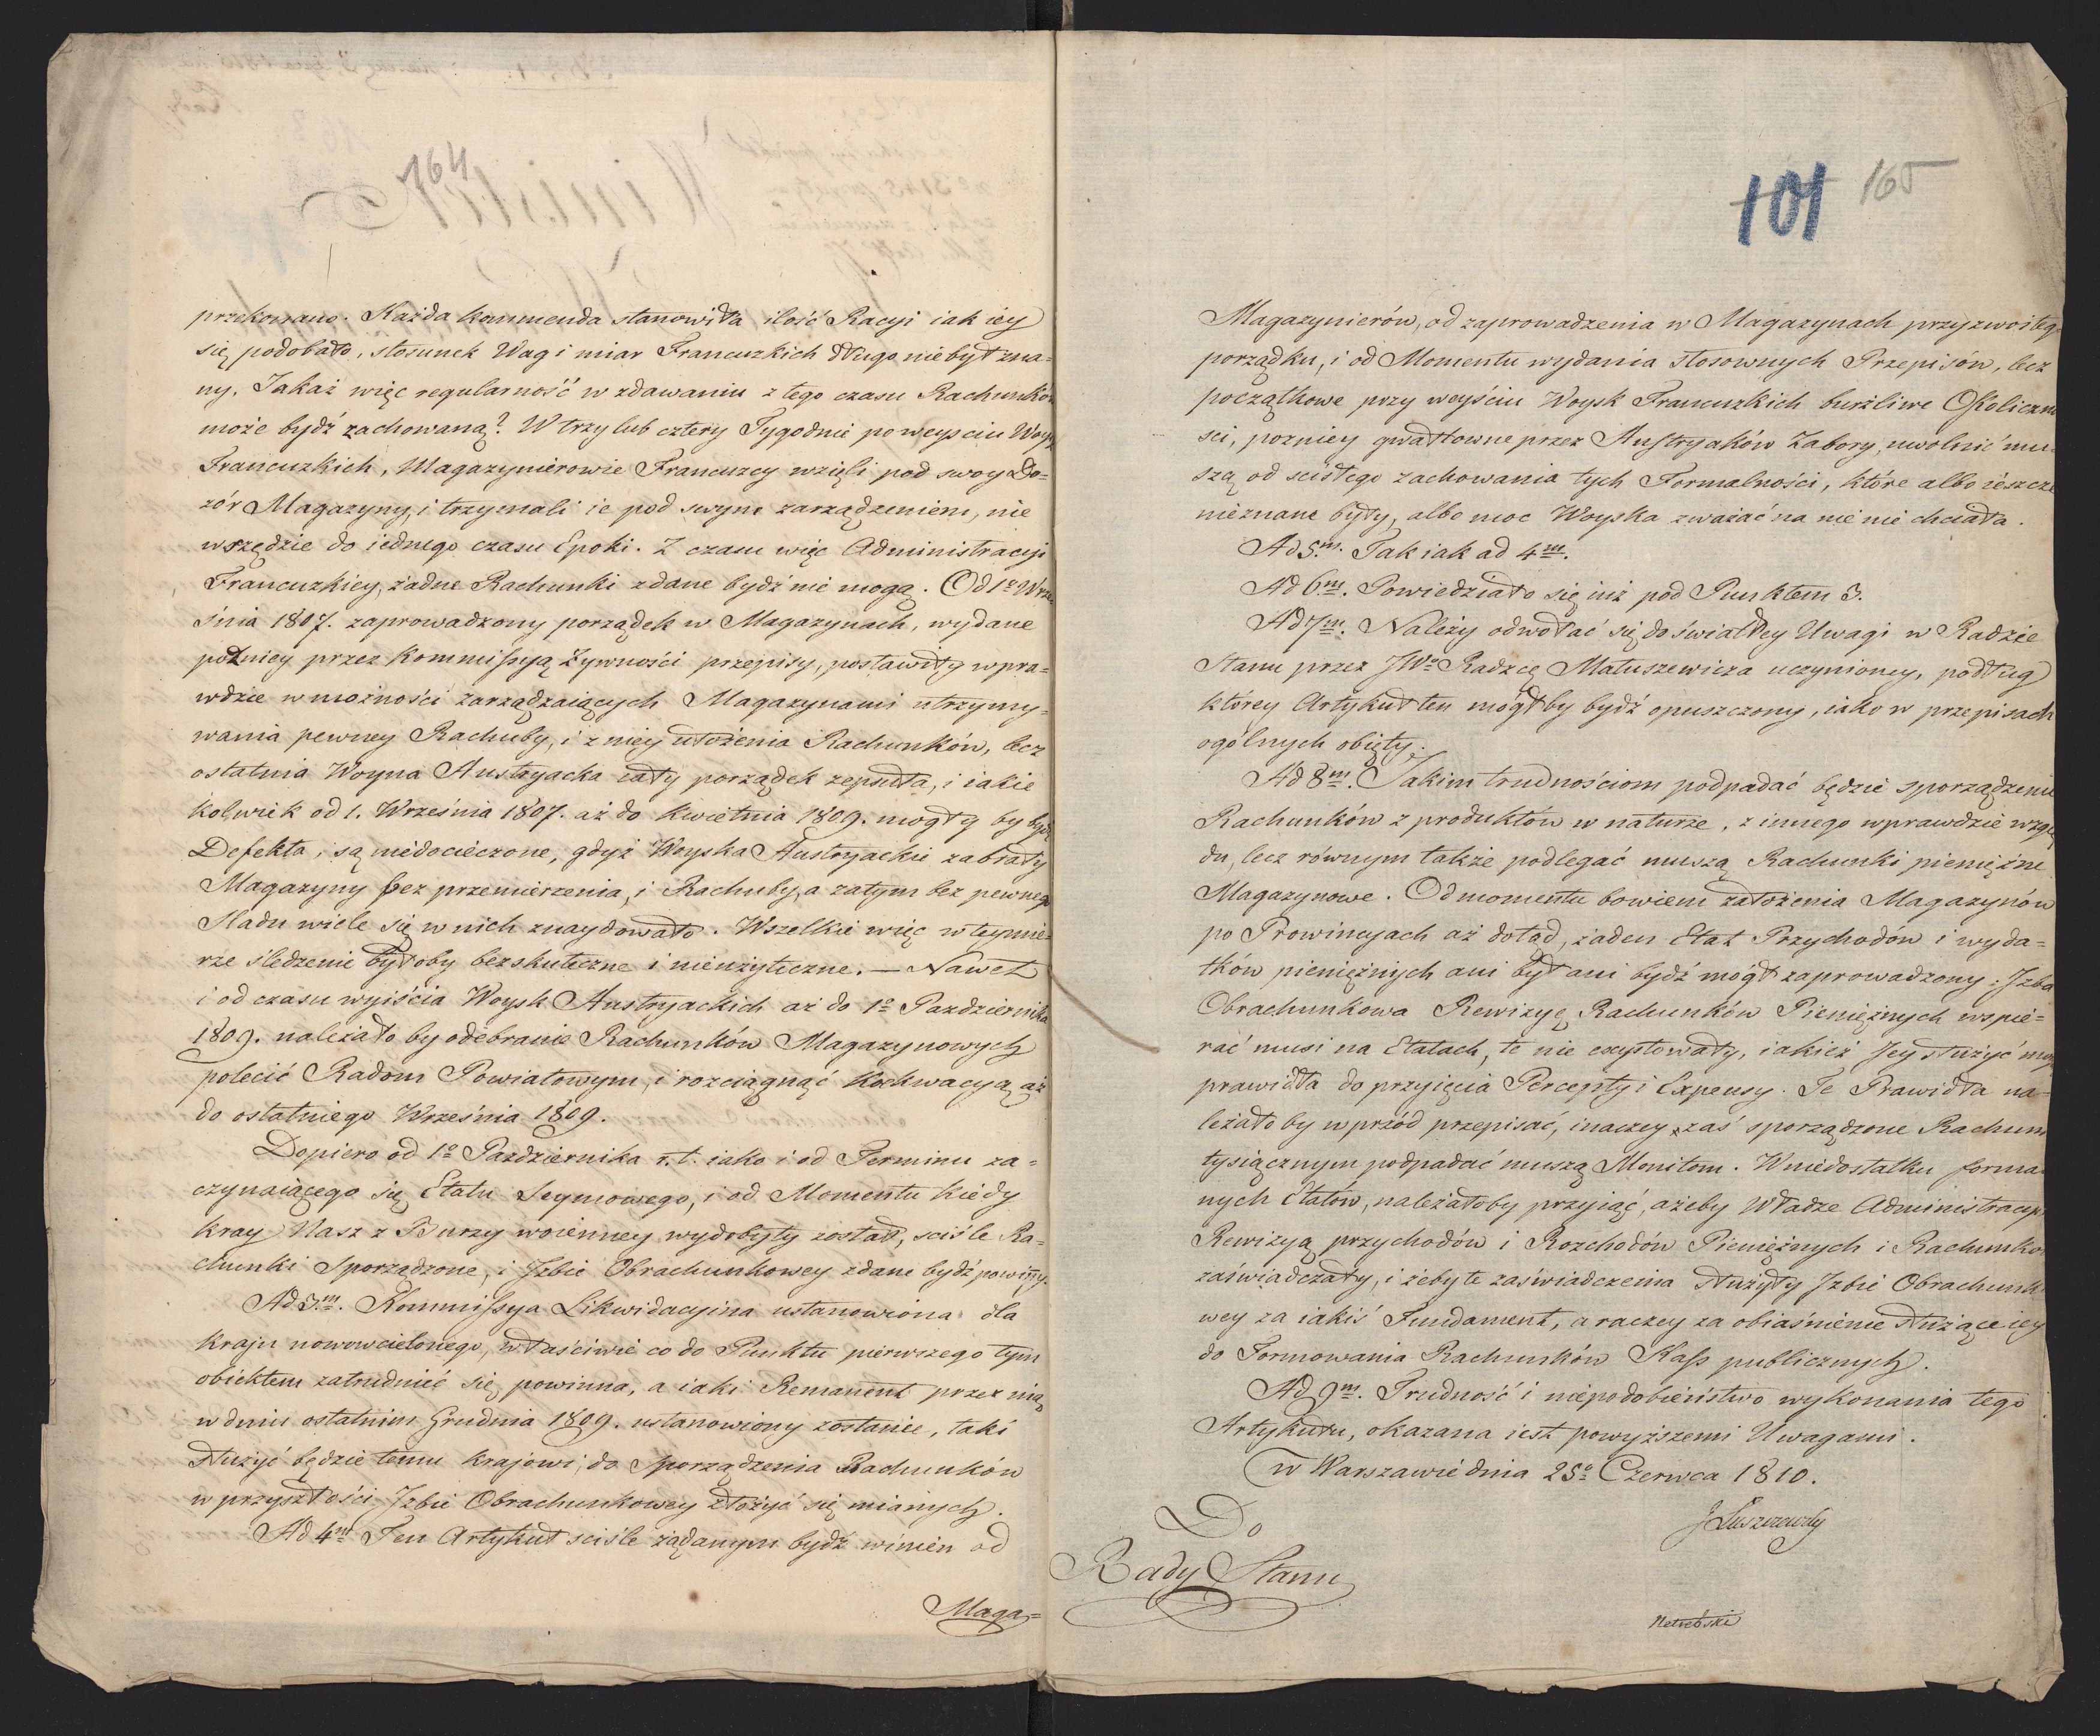 164
przekonano. Każda kommenda stanowiła ilość Racyi iak iey
się podobało, stosunek Wag i miar Francuzkich długo nie był zna-
ny. Jakaż więc regularność w zdawaniu z tego czasu Rachunków
może bydź zachowaną? W trzy lub cztery Tygodnie po weysciu Woysk
Francuzkich, Magazynierowie Francuzcy wzięli pod swoy Do=
zór Magazyny, i trzymali ie pod swym zarządzeniem, nie
wszędzie do iednego czasu Epoki. Z czasu więc Administracyi
Francuzkiey, żadne Rachunki zdane bydź nie mogą. Od 1o Wrze
śnia 1807. zaprowadzony porządek w Magazynach, wydane
pozniey przez Kommissyą Żywności przepisy, postawiły wpra-
wdzie w możności zarządzaiących Magazynami utrzymy-
wania pewney Rachuby, i z niey ułożenia Rachunków, lecz
ostatnia Woyna Austryacka cały porządek zepsuła, i iakie
kolwiek od 1. Września 1807. aż do Kwietnia 1809. mogły by bydź
Defekta, są niedocieczone, gdyż Woyska Austryackie zabrały
Magazyny bez przemierzenia, i Rachuby, a zatym bez pewnego
śladu wiele się w nich znaydowało. Wszelkie więc w tey mie-
rze śledzenie byłoby bezskuteczne i nieużyteczne. — Nawet
i od czasu wyiścia Woysk Austryackich aż do 1o Pazdziernika
1809. należało by odebranie Rachunków Magazynowych
polecić Radom Powiatowym, i rozciągnąć aż
do ostatniego Września 1809.
Dopiero od 1o Pazdziernika r. t. iako i od Terminu za-
czynaiącego się Etatu Seymowego, i od Momentu kiedy
Kray Nasz z Burzy woienney wydobyty został, sciśle Ra-
chunki Sporządzone, i Izbie Obrachunkowey zdane bydź powinny.
Ad 3m. Kommissya Likwidacyina ustanowiona dla
Kraju nowowcielonego, właściwie co do Punktu pierwszego tym
obiektem zatrudnić się powinna, a iaki Remanent przez nią
w dniu ostatnim Grudnia 1809. ustanowiony zostanie, taki
służyć będzie temu krajowi, do Sporządzenia Rachunków
w przyszłości Izbie Obrachunkowey złożyć się mianych.
Ad 4m Ten Artykuł sciśle żądanym bydź winien od
Maga=
101 165
Magazynierów, od zaprowadzenia w Magazynach przyzwoitego
porządku, i od Momentu wydania stosownych Przepisów, lecz
początkowe przy weyściu Woysk Francuzkich burzliwe Okoliczno
sci, pozniey gwałtowne przez Austryaków Zabory, uwolnić mu-
szą od scisłego zachowania tych Formalności, które albo ieszcze
nieznane były, albo moc Woyska zważać na nie nie chciała.
Ad 5.m. Tak iak ad 4m.
Ad 6m. Powiedziało się iuż pod Punktem 3.
Ad 7m. Należy odwołać się do światłey Uwagi w Radzie
Stanu przez JWo Radzcę Matuszewicza uczynioney, podług
którey Artykuł ten mógłby bydź opuszczony, iako w przepisach
ogólnych obięty.
Ad 8m. Jakim trudnościom podpadać będzie sporządzenie
Rachunków z produktów w naturze, z innego wprawdzie wzglę
du, lecz równym także podlegać muszą Rachunki pieniężne
Magazynowe. Od momentu bowiem założenia Magazynów
po Prowincyach aż dotąd, żaden Etat Przychodów i wyda=
tków pieniężnych ani był ani bydź mógł zaprowadzony; Izba
Obrachunkowa Rewizyę Rachunków Pieniężnych wspie=
rać musi na Etatach, te nie exystowały, iakież Jey służyć mogą
prawidła do przyięcia Percepty i Expensy. Te Prawidła na=
leżało by w przód przepisać, inaczey zaś sporządzone Rachunki
tysiącznym podpadać muszą Monitom. W niedostatku forma
nych Etatów, należałoby przyiąć, ażeby Władze Administracyi
Rewizyą przychodów i Rozchodów Pieniężnych i Rachunków
zaświadczały, i żeby te zaświadczenia służyły Izbie Obrachunko
wey za iakiś Fundament, a raczey za obiaśnienie służące iey
do Formowania Rachunków Kass publicznych.
Ad 9m. Trudność i niepodobieństwo wykonania tego
Artykułu, okazana iest powyższemi Uwagami.
w Warszawie dnia 25o Czerwca 1810.
J Łuszczewsky
Do
Rady Stanu
Netrebski